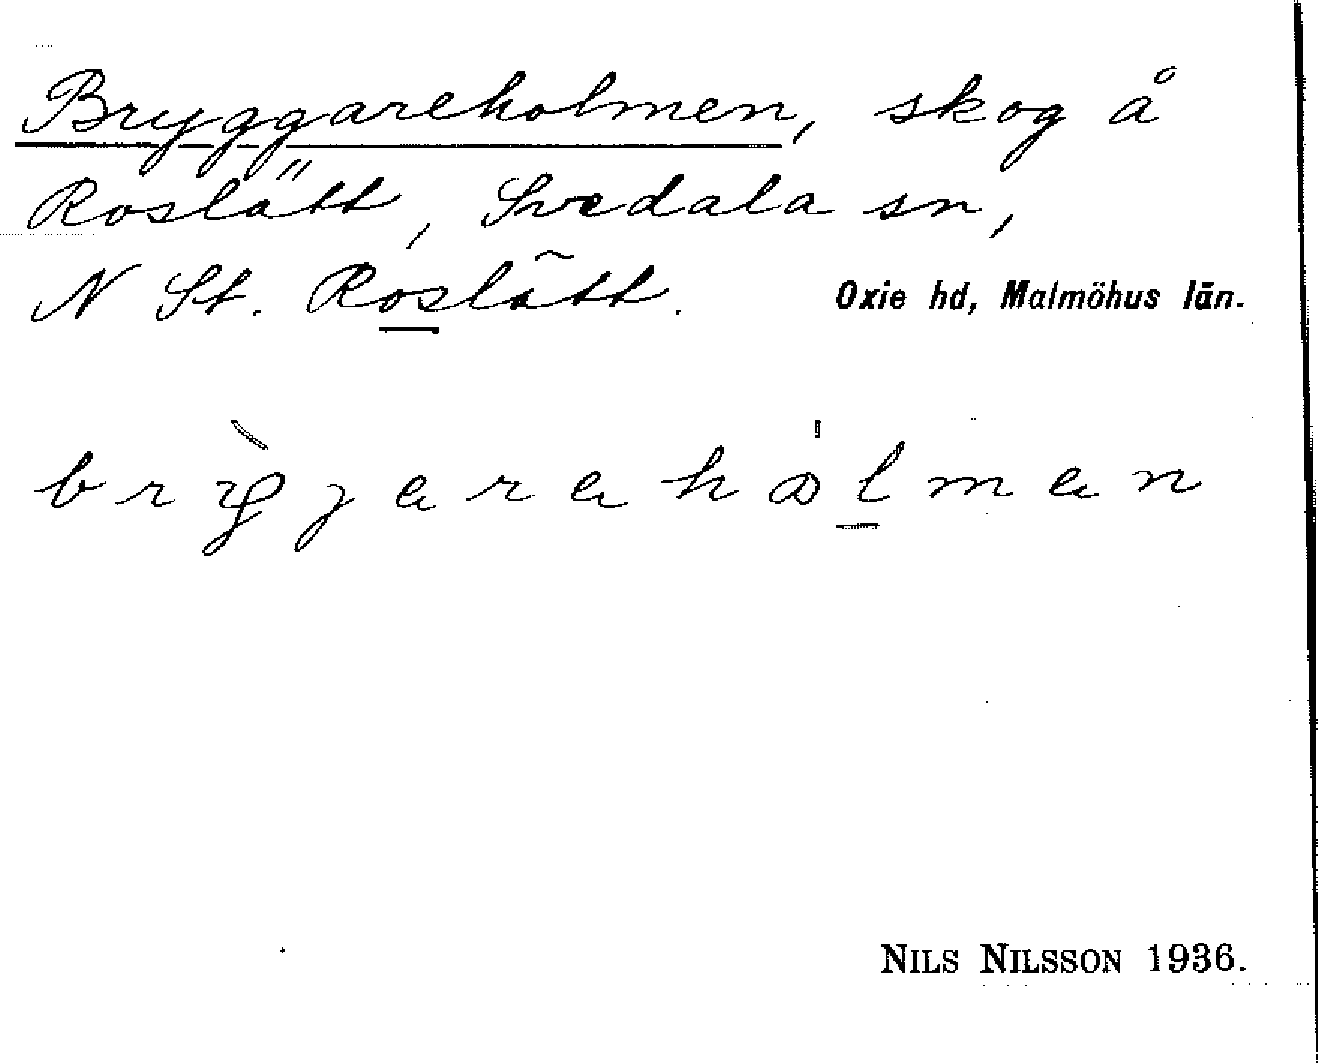 Bryggareholmen, skog å
Roslätt, Svedala sn,
N St. Roslätt. Oxie hd, Malmöhus län.
NILS NILSSON 1936.